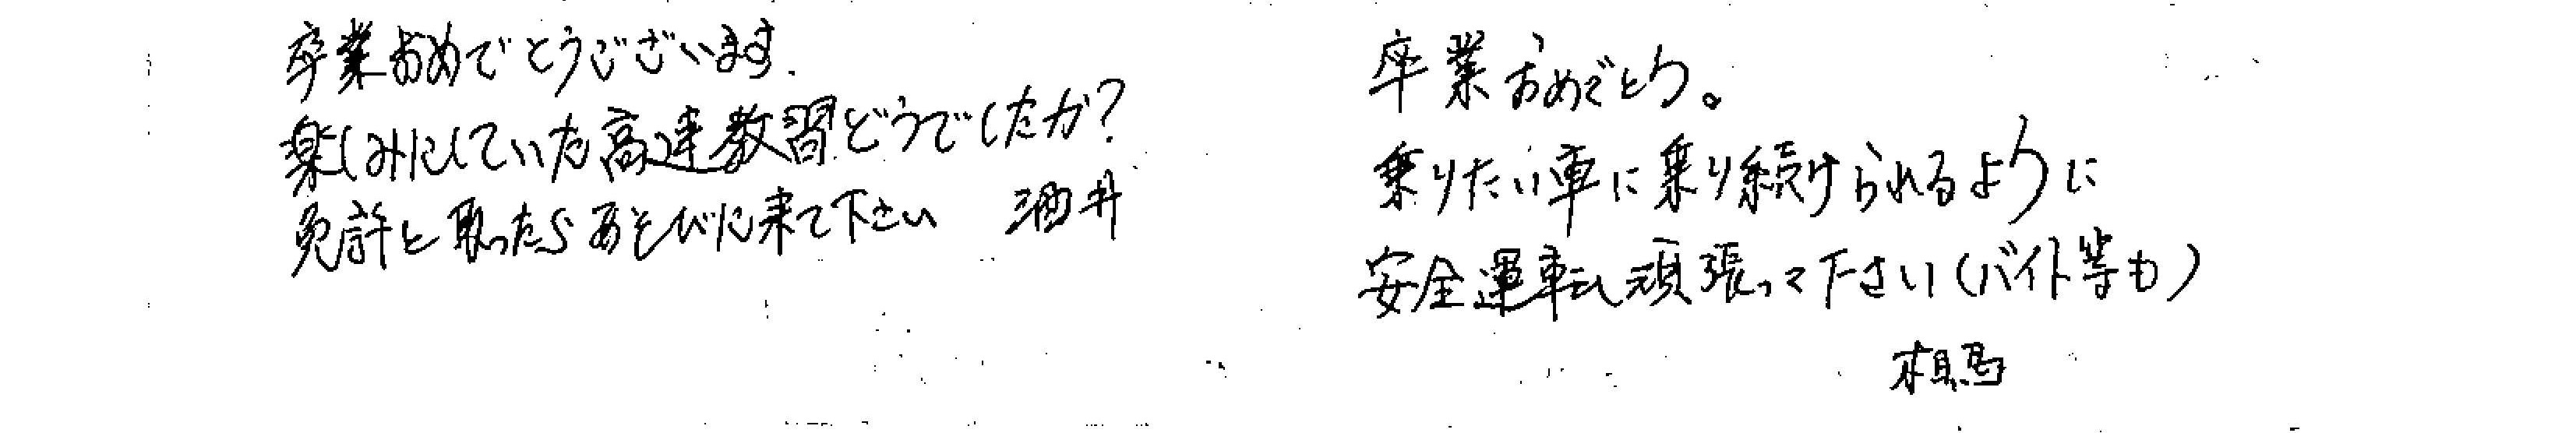 卒業おめでとうございます.
楽しみにしていた高速教習どうでしたか?
免許と取ったらあそびに来て下さい 酒井
卒業おめでとう。
乗りたい車に乗り続けられるように
安全運転し頑張って下さい(バイト等も)
相馬